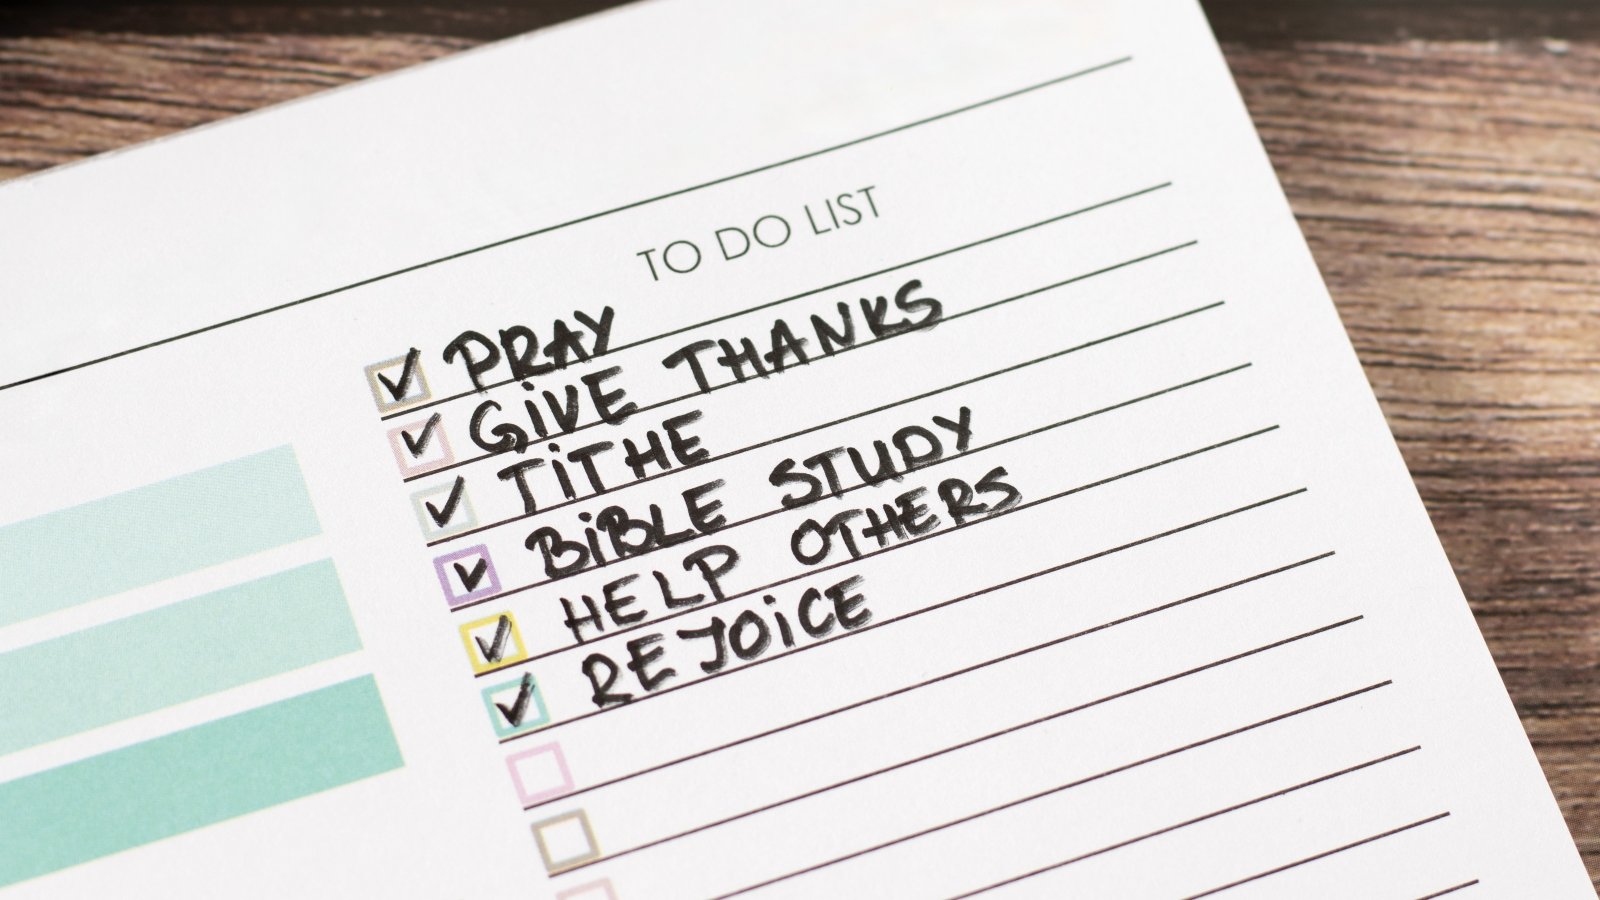 TO DO LIST
PRAY
GIVE THANKS
TITHE
BIBLE STUDY
HELP OTHERS
REJOICE